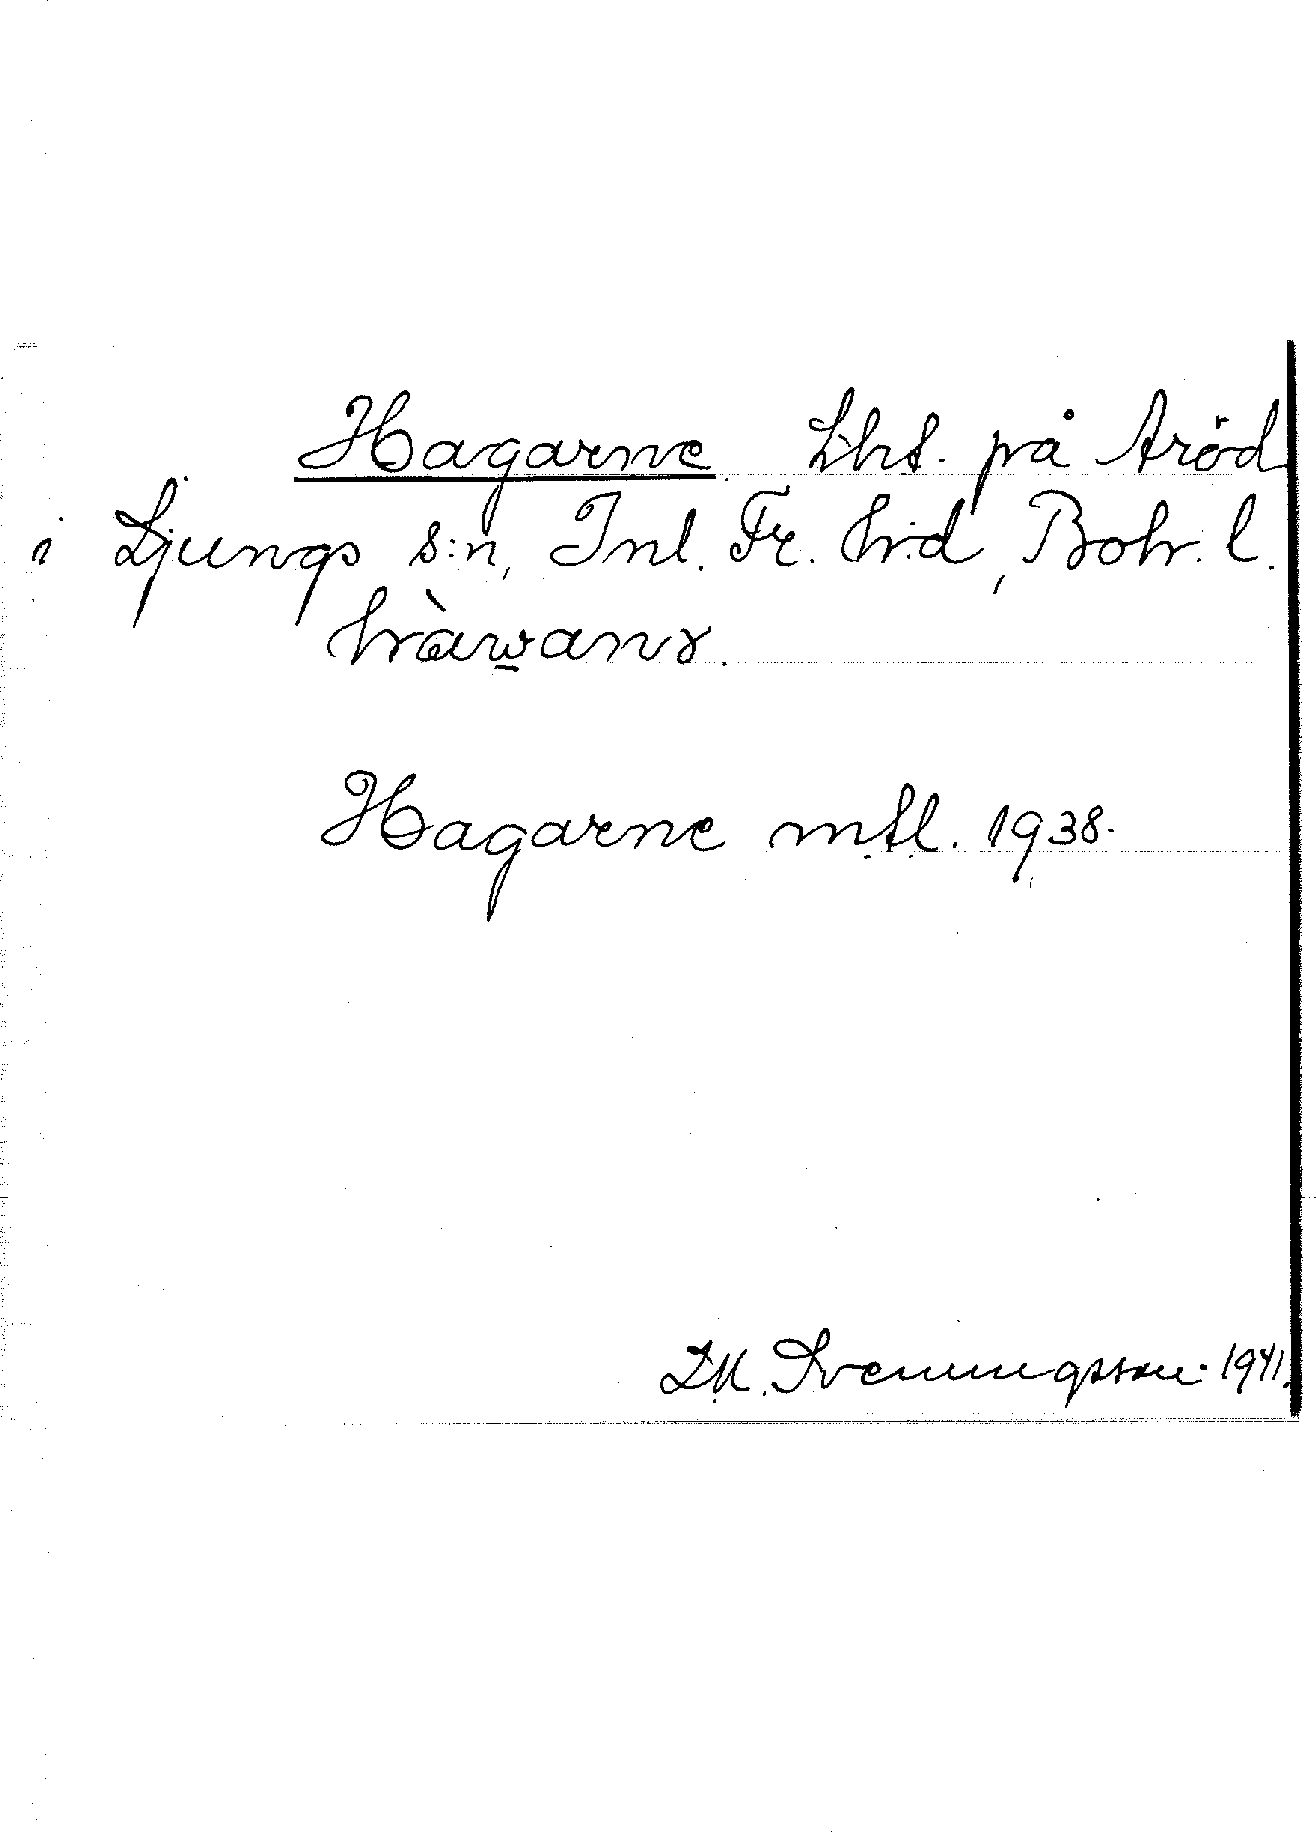 Hagarne Lht. på Aröd
i Ljungs s:n, Inl. Fr. hd, Boh. l.
hàwanr.
Hagarne mtl. 1938.
D.M. Sveningsson 1941.